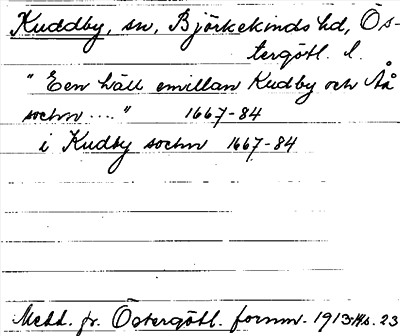 Kuddby, sn, Björkekinds hd, Ös-
tergötl. l.
"Een häll emillan Kudby och Åå
sochn ...." 1667-84
i Kudby sochn 1667-84
Medd. fr. Östergötl. fornm. 1913 s. 23